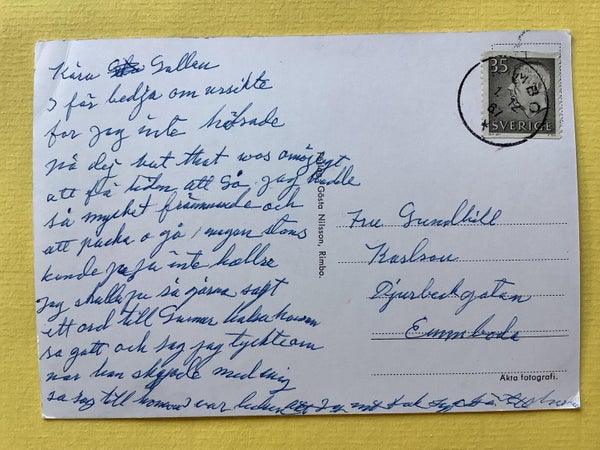 Kära Gullan
I får bedja om ursikte
for jag inte hälsade
på dig but that was omöjligt
att få tiden att Gå, jag hadde
så mycket främmande och
att packa o gå, nogon stans
kunde jag ju inte heller
Jag skulle ju så gärna sagt
ett ord till Gunnar Halsa honom
så gott och Sag jag tyckte om
nar han skojade med mig
sa Sag till honom
Gösta Nilsson, Rimbo.
35
SVERIGE
Fru Gundhill
Karlson
Djurbecksgatan
Emmboda
Äkta fotografi.